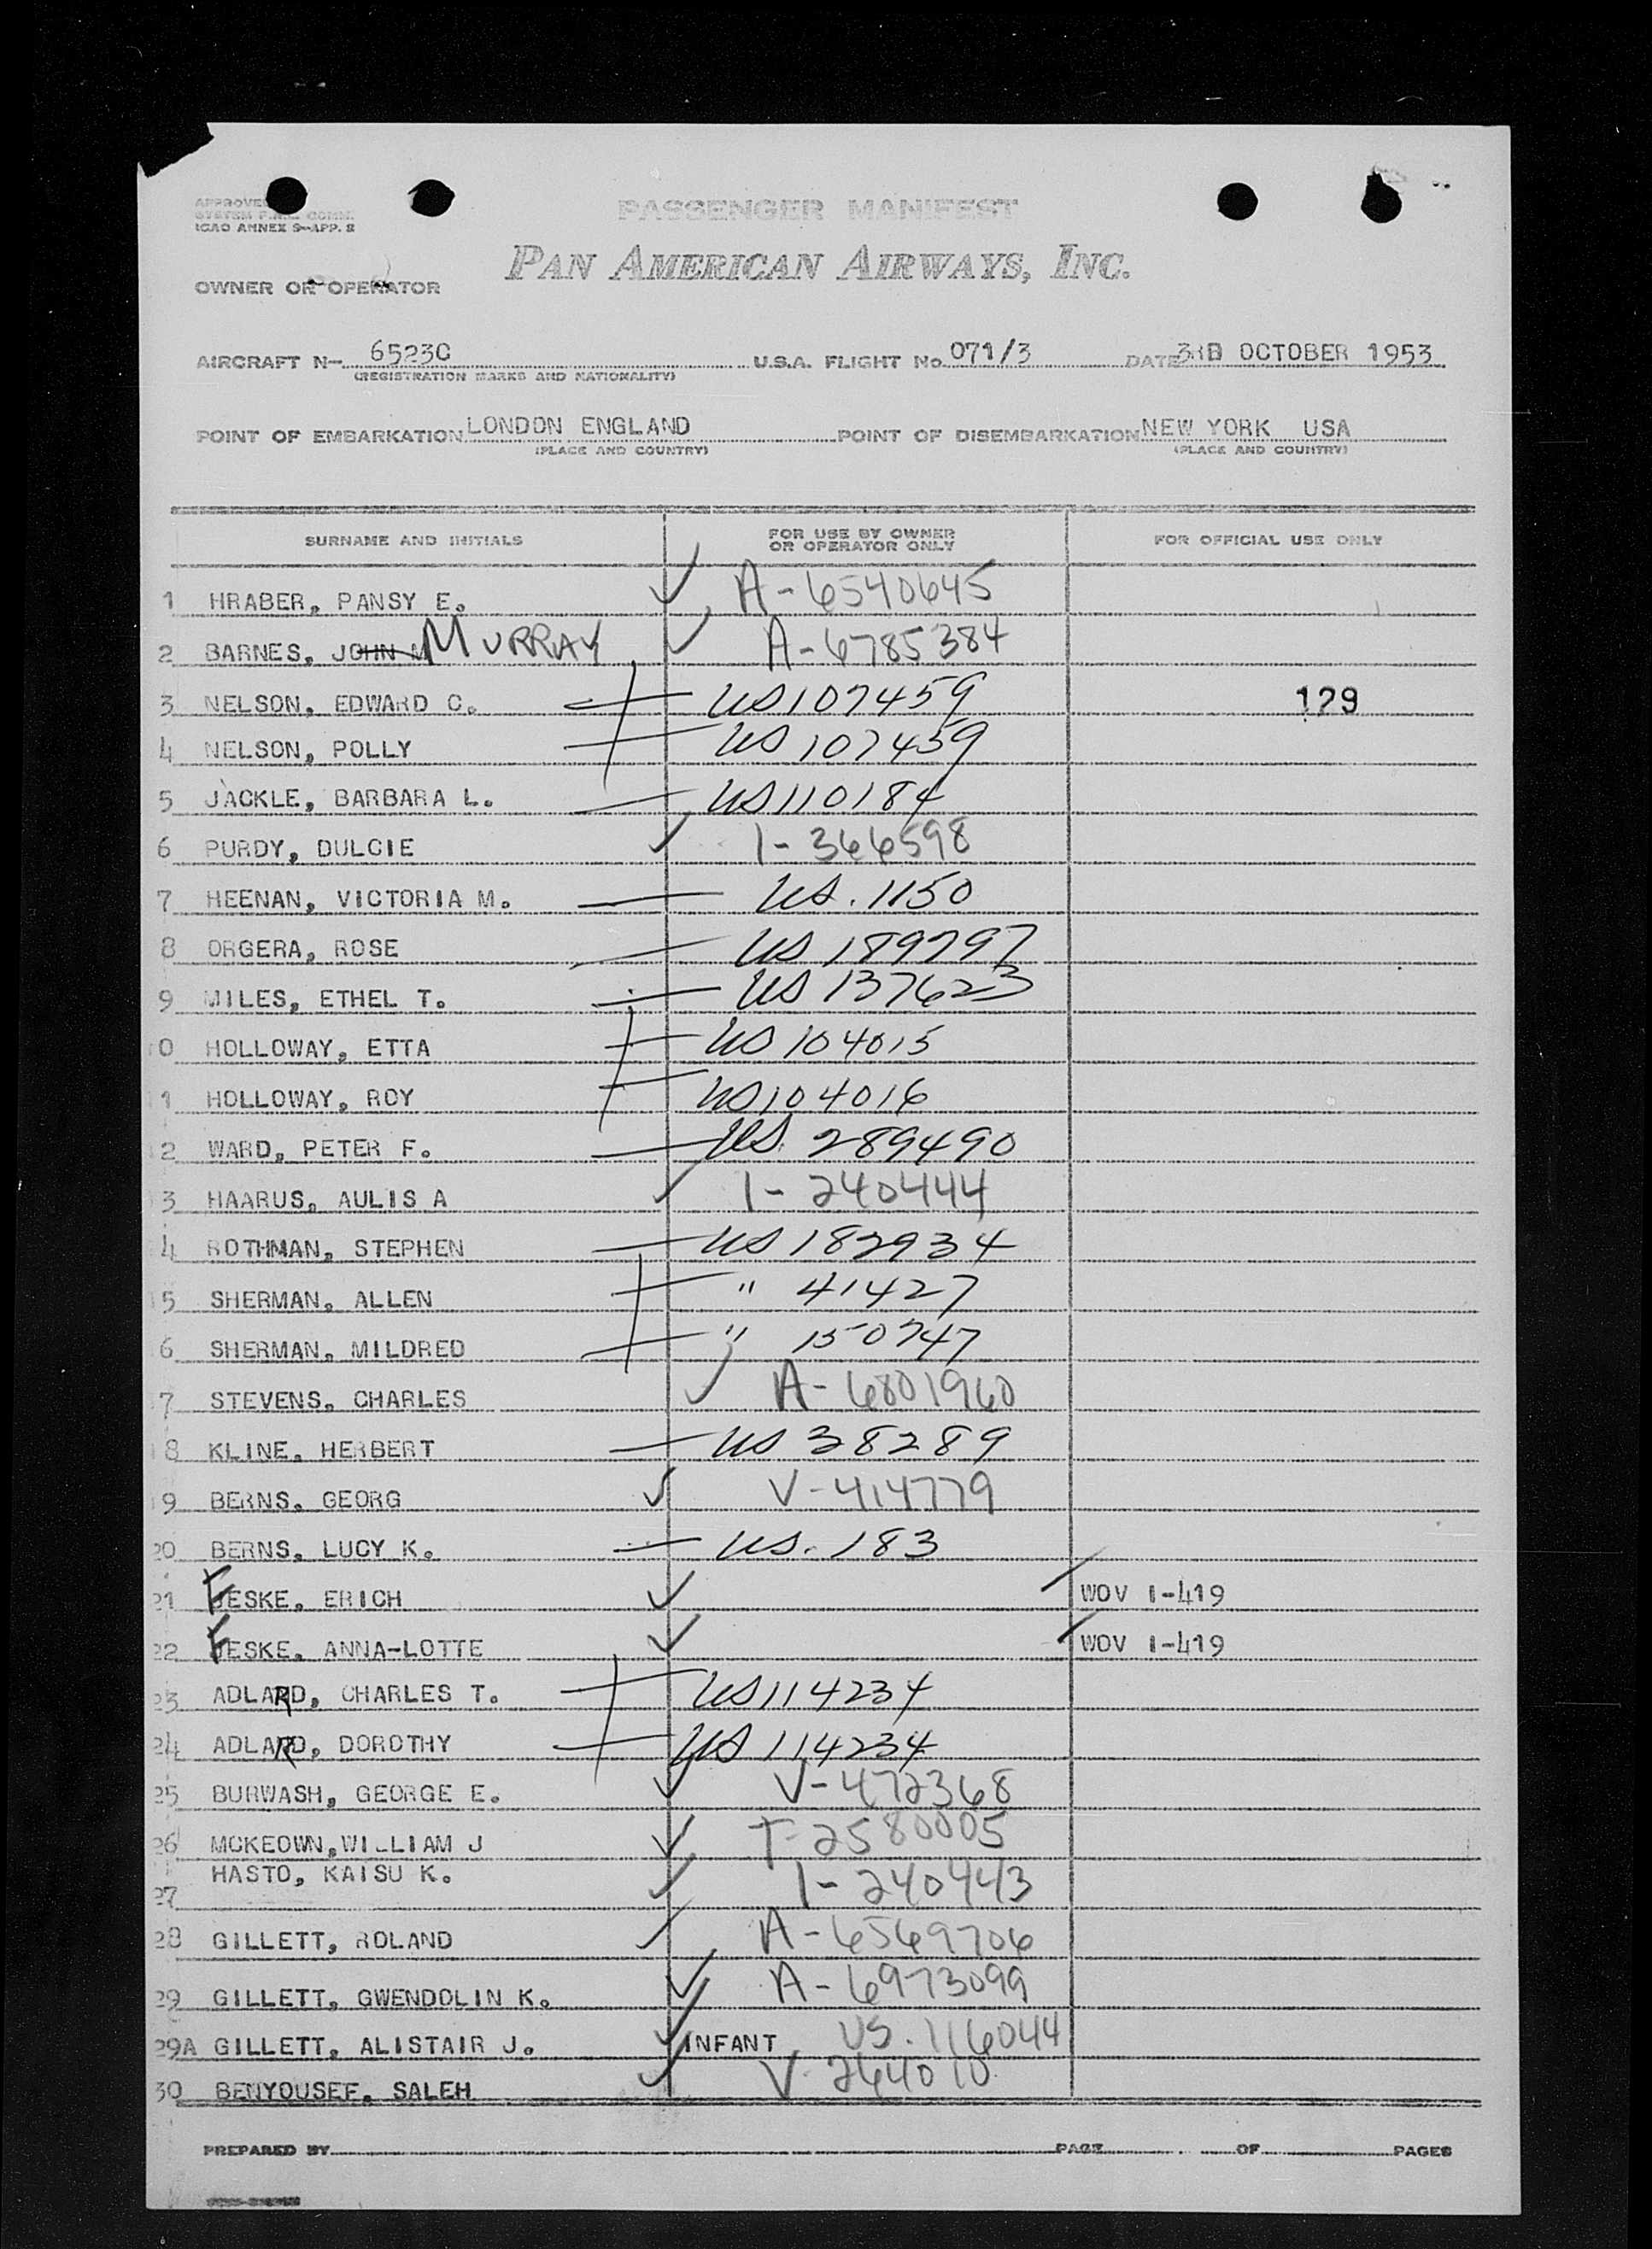 PASSENGER MANIFEST
ICAO ANNEX 9-APP. 8
PAN AMERICAN AIRWAYS, INC.
OWNER OR OPERATOR
AIRCRAFT N- 6523C U.S.A. FLIGHT No. 071/3 DATE 3RD OCTOBER 1953
(REGISTRATION MARKS AND NATIONALITY)
POINT OF EMBARKATION LONDON ENGLAND POINT OF DISEMBARKATION NEW YORK USA
(PLACE AND COUNTRY) (PLACE AND COUNTRY)
SURNAME AND INITIALS FOR USE BY OWNER OR OPERATOR ONLY FOR OFFICIAL USE ONLY
1 HRABER, PANSY E. A-6540645
2 BARNES, JOHN M MURRAY A-6785384
3 NELSON, EDWARD C. US107459 129
4 NELSON, POLLY US 107459
5 JACKLE, BARBARA L. US110184
6 PURDY, DULCIE 1-366598
7 HEENAN, VICTORIA M. US.1150
8 ORGERA, ROSE US 189797
9 MILES, ETHEL T. US 137623
0 HOLLOWAY, ETTA US 104015
1 HOLLOWAY, ROY US104016
2 WARD, PETER F. US. 289490
3 HAARUS, AULIS A 1-240444
4 ROTHMAN, STEPHEN US 182934
5 SHERMAN, ALLEN " 41427
6 SHERMAN, MILDRED " 150747
7 STEVENS, CHARLES A-6801960
8 KLINE, HERBERT US 38289
9 BERNS, GEORG V-414779
20 BERNS, LUCY K. US. 183
21 FESKE, ERICH WOV I-419
22 FESKE, ANNA-LOTTE WOV I-419
23 ADLARD, CHARLES T. US114234
24 ADLARD, DOROTHY US 114234
25 BURWASH, GEORGE E. V-472368
26 MCKEOWN, WILLIAM J T-2580005
27 HASTO, KAISU K. 1-240443
28 GILLETT, ROLAND A-6569706
29 GILLETT, GWENDOLIN K. A-6973099
29A GILLETT, ALISTAIR J. INFANT US.116044
30 BENYOUSEF, SALEH V-264010
PREPARED BY PAGE OF PAGES